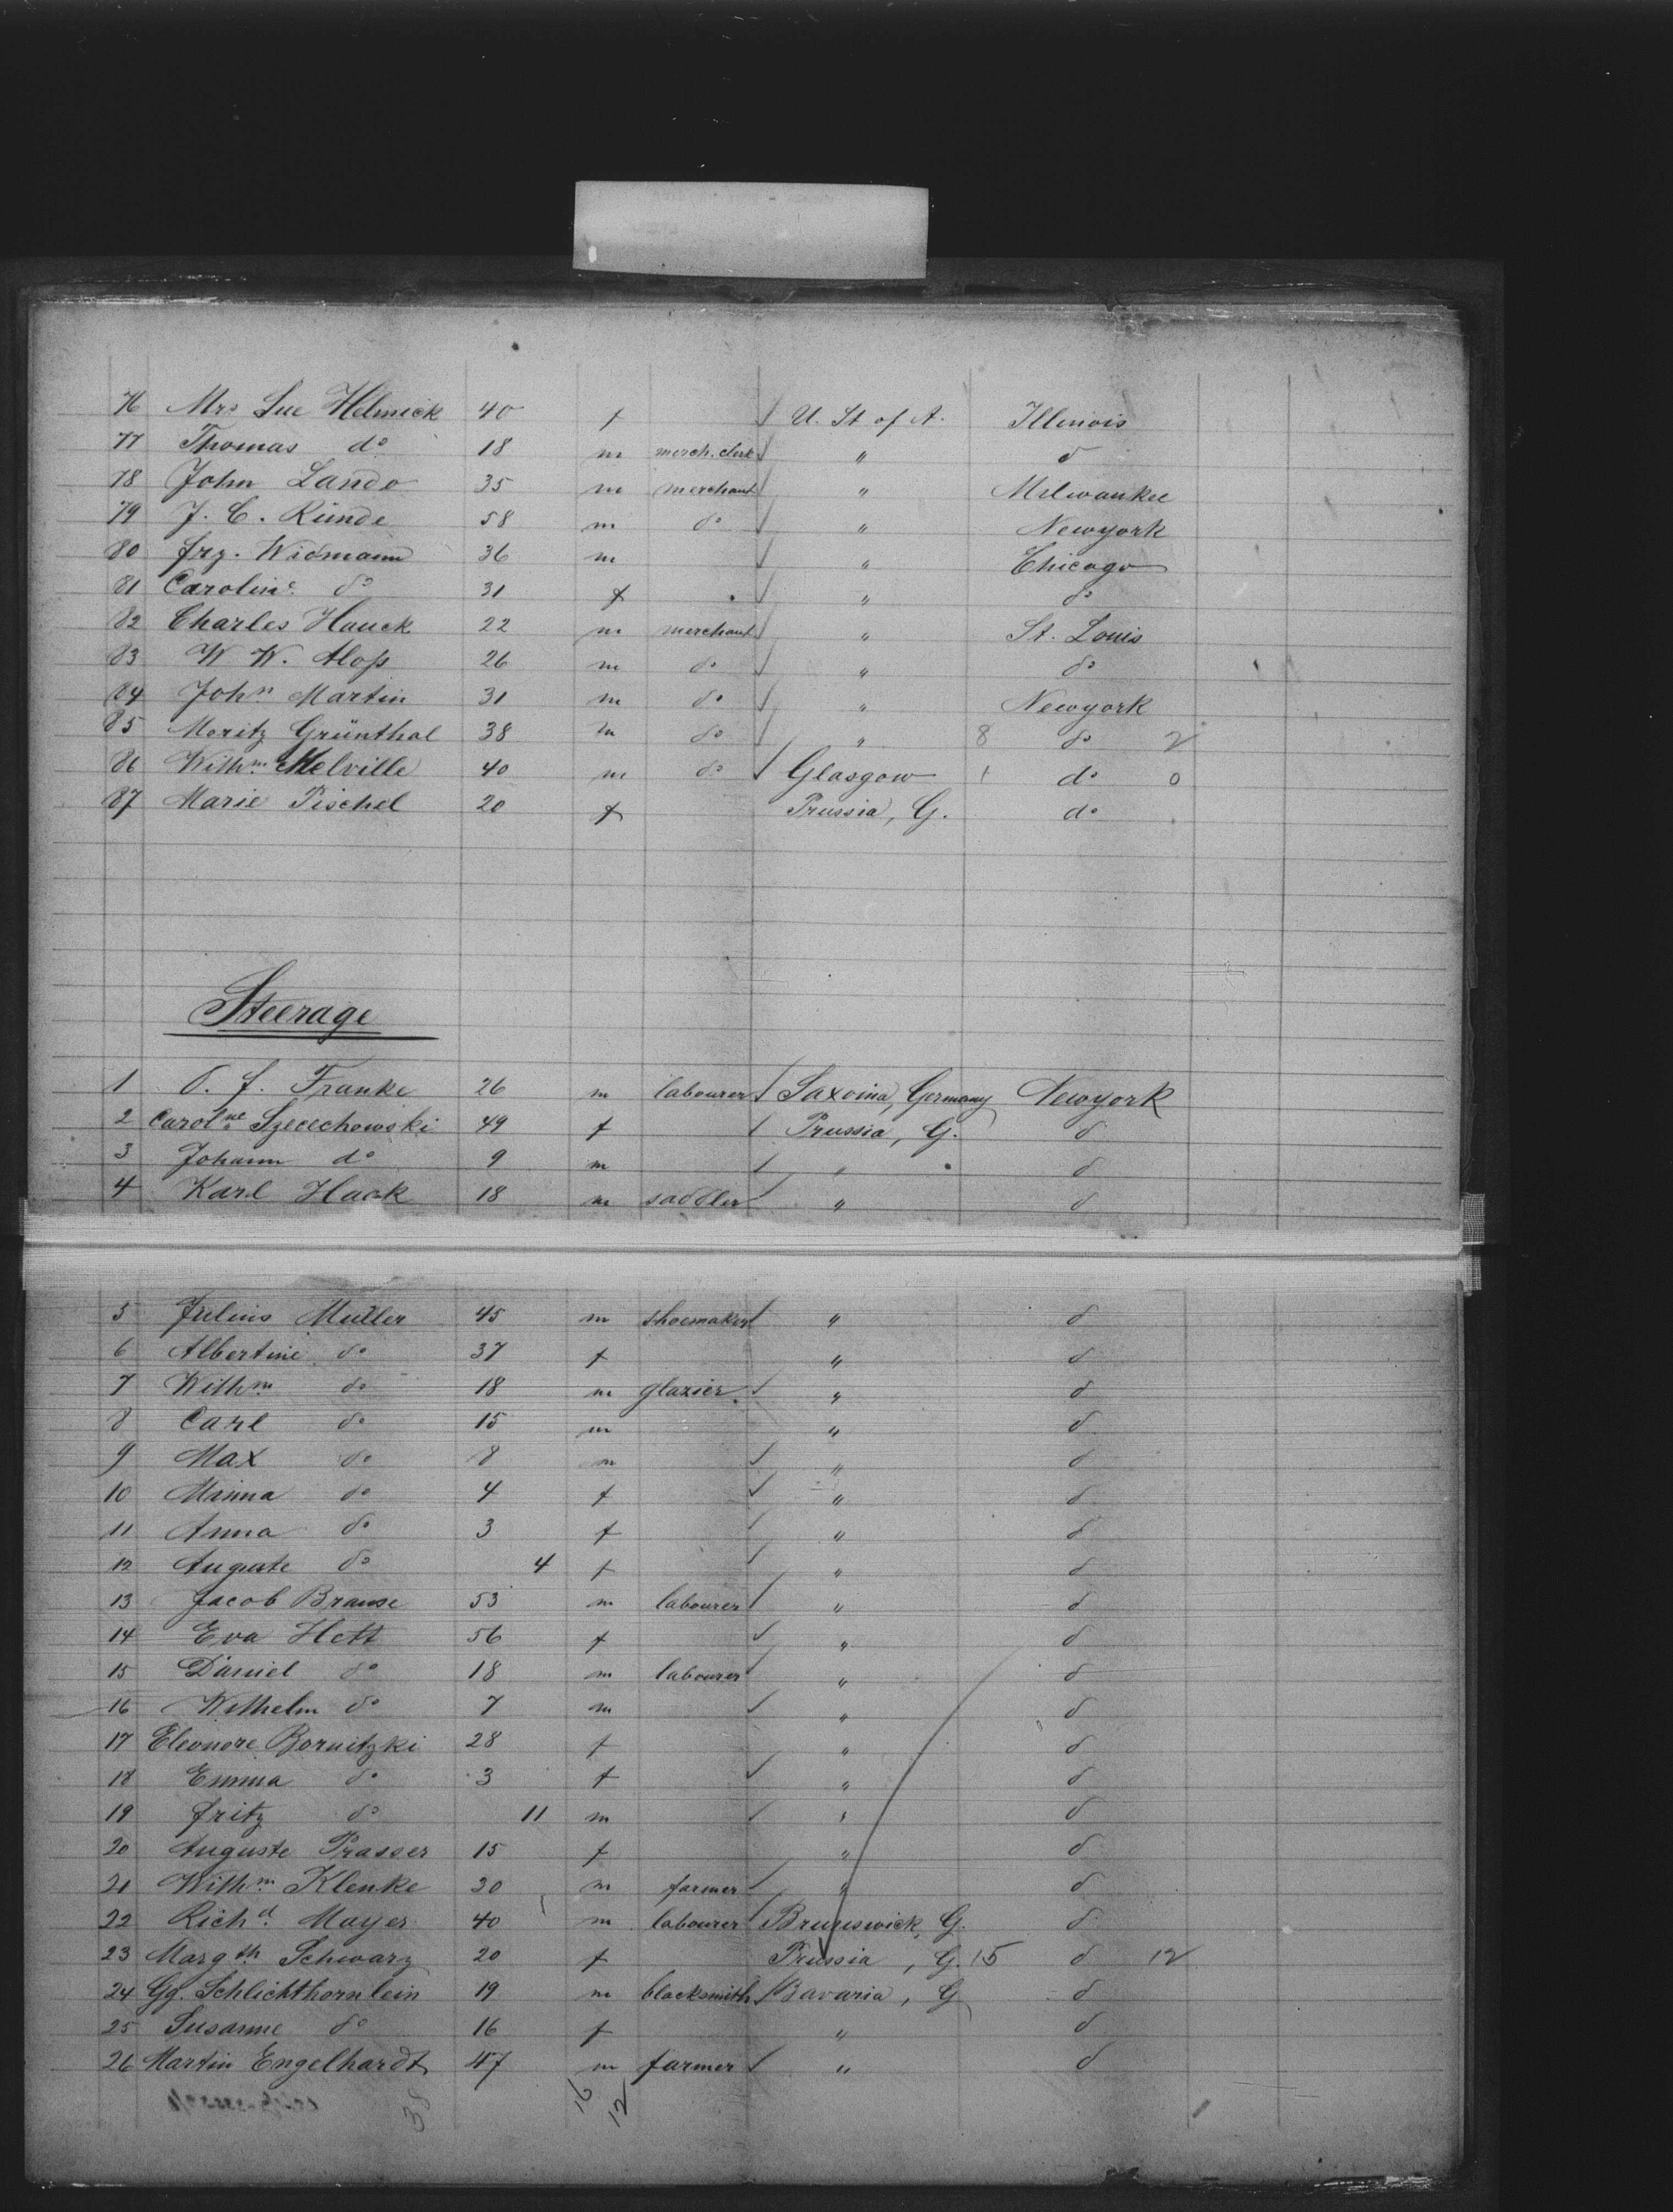 76 Mrs Sue Helmick 40 f U. St of A. Illinois
77 Thomas do 18 m merch. clerk " do
78 John Lando 35 m merchant " Milwaukee
79 J. C. Runde 58 m do " Newyork
80 Frz. Widmann 36 m " Chicago
81 Caroline do 31 f " do
82 Charles Hauck 22 m merchant " St. Louis
83 W W. 26 m do " do
84 John Martin 31 m do " Newyork
85 Moritz Grünthal 38 m do " 8 do 2
86 Wilhm Melville 40 m do Glasgow 1 do 0
87 Marie Pischel 20 f Prussia, G. do
Steerage
1 O. F. Franke 26 m labourer Saxoina, Germany Newyork
2 Carolne Szecechowski 49 f Prussia, G. do
3 Johann do 9 m " do
4 Karl Haak 18 m saddler " do
5 Julius Muller 45 m shoemaker " do
6 Albertine do 37 f " do
7 Wilhm do 18 m glazier " do
8 Carl do 15 m " do
9 Max do 8 m " do
10 Minna do 4 f " do
11 Anna do 3 f " do
12 Auguste do 4 f " do
13 Jacob Brause 53 m labourer " do
14 Eva Hett 56 f " do
15 Daniel do 18 m labourer " do
16 Wilhelm do 7 m " do
17 Eleonore Bornitzki 28 f " do
18 Emma do 3 f " do
19 Fritz do 11 m " do
20 Auguste Prasser 15 f " do
21 Wilhm Klenke 30 m farmer " do
22 Richd Mayer 40 m labourer Brunswick, G. do
23 Margth Schwarz 20 f Prussia, G. 15 do 12
24 Gg. Schlichthornlein 19 m blacksmith Bavaria, G do
25 Susanne do 16 f " do
26 Martin Engelhardt 47 m farmer " do
38 16 12